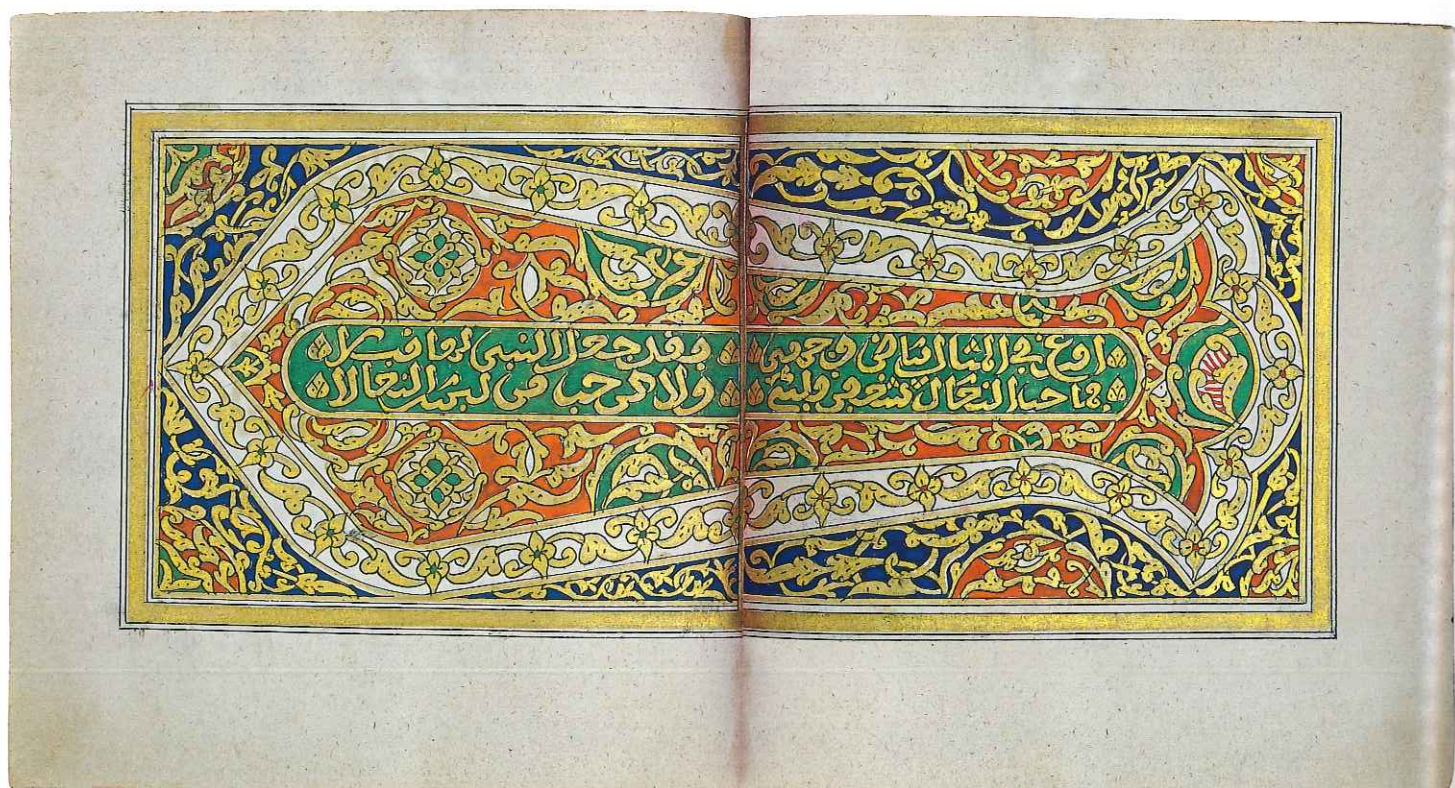 امرغ في المثال بياض وقد جعل النبي لها قبالا
وما حب النعال شغفن قلبي ولاكن حب من لبس النعالا